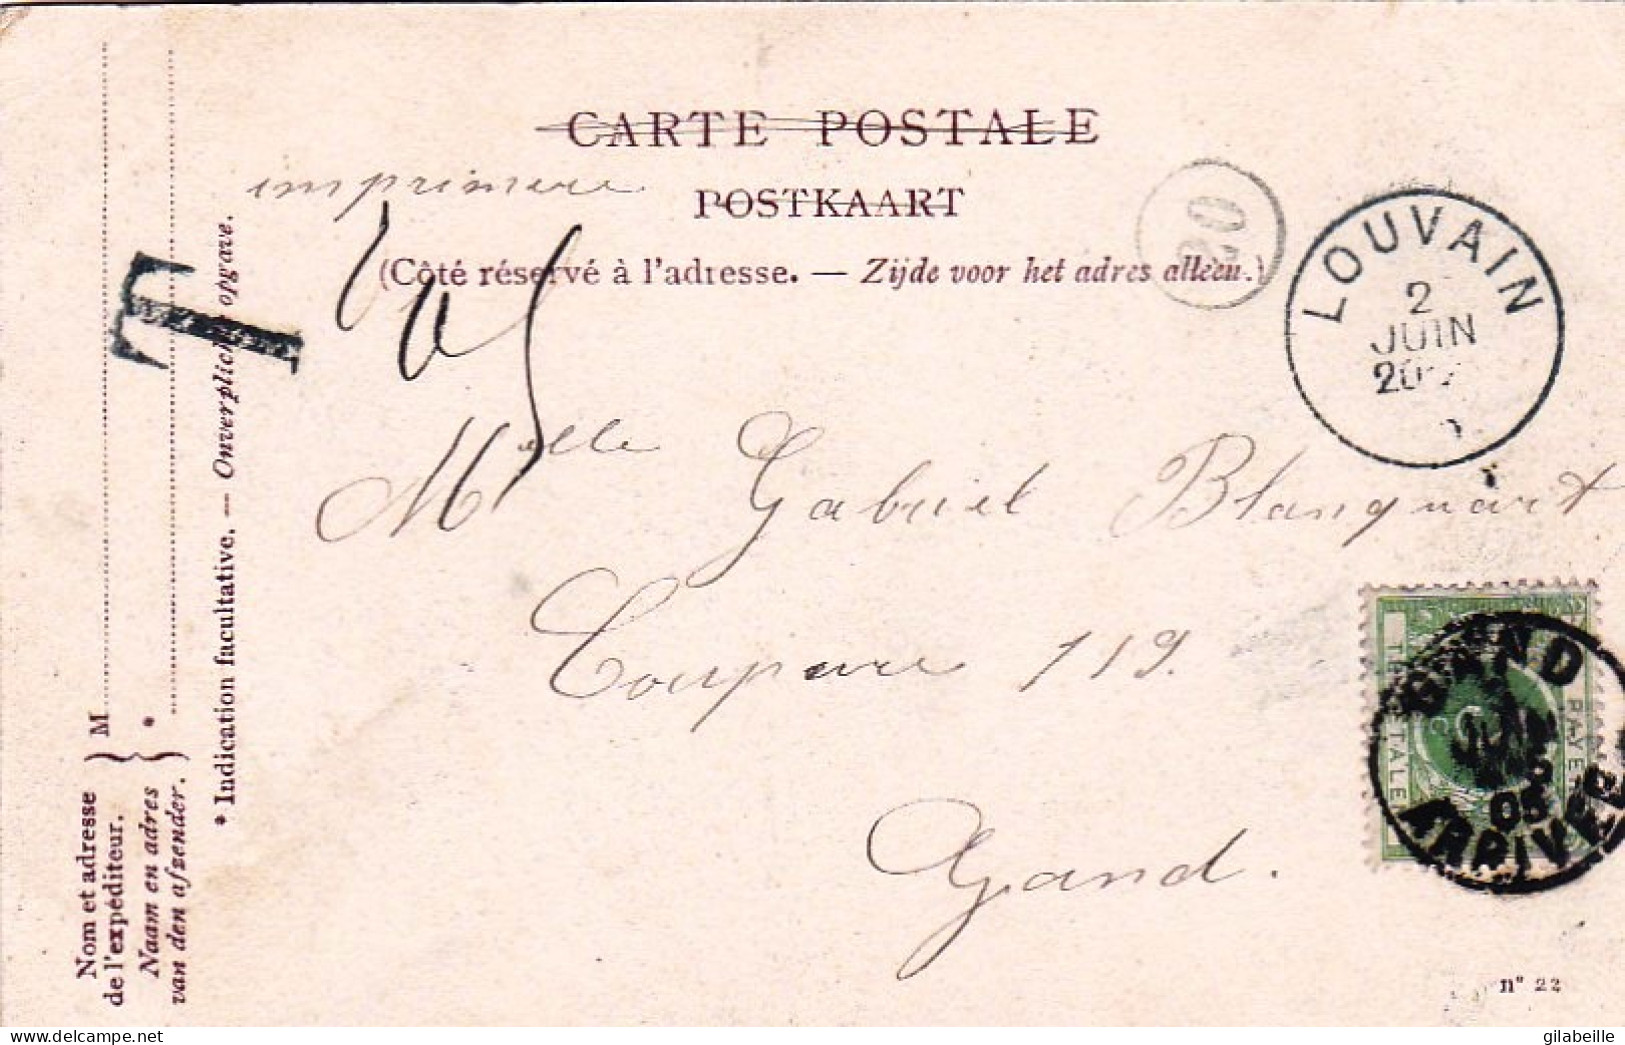 CARTE POSTALE
imprimere
POSTKAART
(Côté réservé à l'adresse. — Zijde voor het adres alleen.)
20
LOUVAIN
2
JUIN
20
T
Melle Gabriel Blanquart
Coupure 119.
Gand.
GAND
JUIN
05
ARRIVEE
PAYER
n° 22
M
*
Nom et adresse
de l'expéditeur.
Naam en adres
van den afzender.
* Indication facultative. — Onverplichte opgave.
delcampe.net
gilabeille